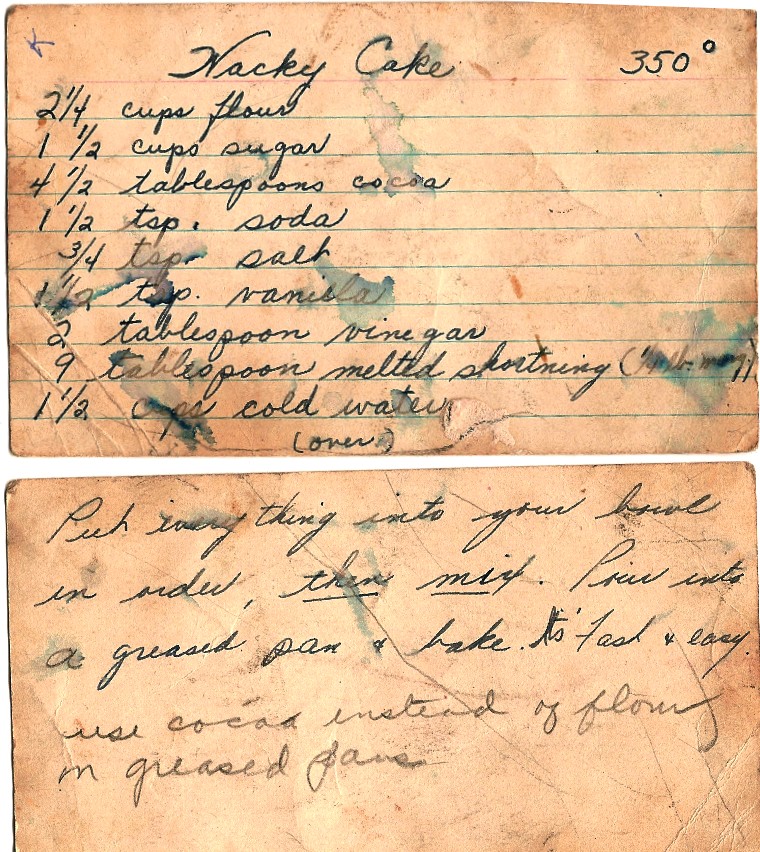 Wacky Cake 350°
2 1/4 cups flour
1 1/2 cups sugar
4 1/2 tablespoons cocoa
1 1/2 tsp. soda
3/4 tsp. salt
1 1/2 tsp. vanilla
2 tablespoon vinegar
9 tablespoon melted shortning (1/4 lb.
1 1/2 cups cold water
(over)
Put every thing into your bowl
in order, then mix. Pour into
a greased pan & bake. Its' fast & easy.
use cocoa instead of flour
on greased pans